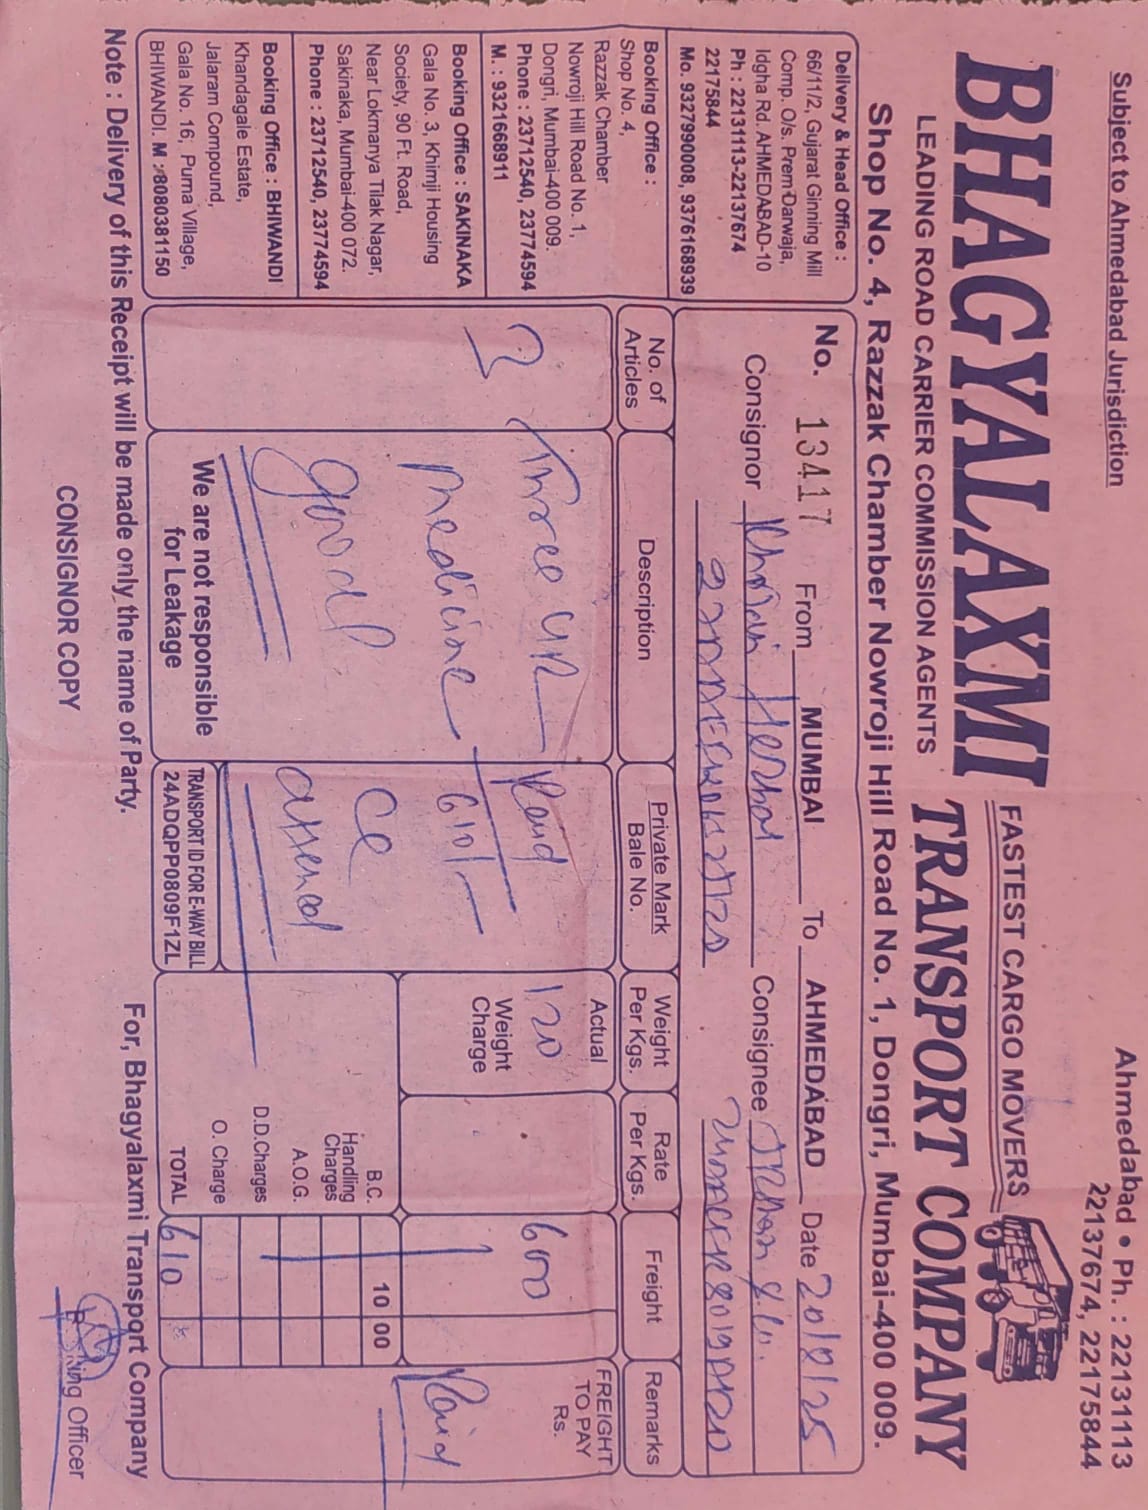 Subject to Ahmedabad Jurisdiction
Ahmedabad • Ph. : 22131113
22137674, 22175844
BHAGYALAXMI
FASTEST CARGO MOVERS
TRANSPORT COMPANY
LEADING ROAD CARRIER COMMISSION AGENTS
Shop No. 4, Razzak Chamber Nowroji Hill Road No. 1, Dongri, Mumbai-400 009.
Delivery & Head Office :
66/11/2, Gujarat Ginning Mill
Comp. O/s. Prem Darwaja,
Idgha Rd. AHMEDABAD-10
Ph : 22131113-22137674
22175844
Mo. 9327990008, 9376168939
Booking Office :
Shop No. 4,
Razzak Chamber
Nowroji Hill Road No. 1,
Dongri, Mumbai-400 009.
Phone : 23712540, 23774594
M. : 9321668911
Booking Office : SAKINAKA
Gala No. 3, Khimji Housing
Society, 90 Ft. Road,
Near Lokmanya Tilak Nagar,
Sakinaka, Mumbai-400 072.
Phone : 23712540, 23774594
Booking Office : BHIWANDI
Khandagale Estate,
Jalaram Compound,
Gala No. 16, Purna Village,
BHIWANDI. M : 8080381150
No. 13417 From MUMBAI To AHMEDABAD Date 20/8/25
Consignor Consignee
No. of Articles
Description
Private Mark
Bale No.
Weight Per Kgs.
Rate Per Kgs.
Freight
Remarks
3
Three
medicine
good
Paid
610/-
CC
attached
Actual
120
Weight Charge
600
FREIGHT TO PAY Rs.
Paid
B.C. 10 00
Handling Charges
A.O.G.
D.D.Charges
O. Charge
TOTAL 610
We are not responsible for Leakage
TRANSPORT ID FOR E-WAY BILL
24ADQPP0809F1ZL
Note : Delivery of this Receipt will be made only the name of Party.
For, Bhagyalaxmi Transport Company
CONSIGNOR COPY
Booking Officer